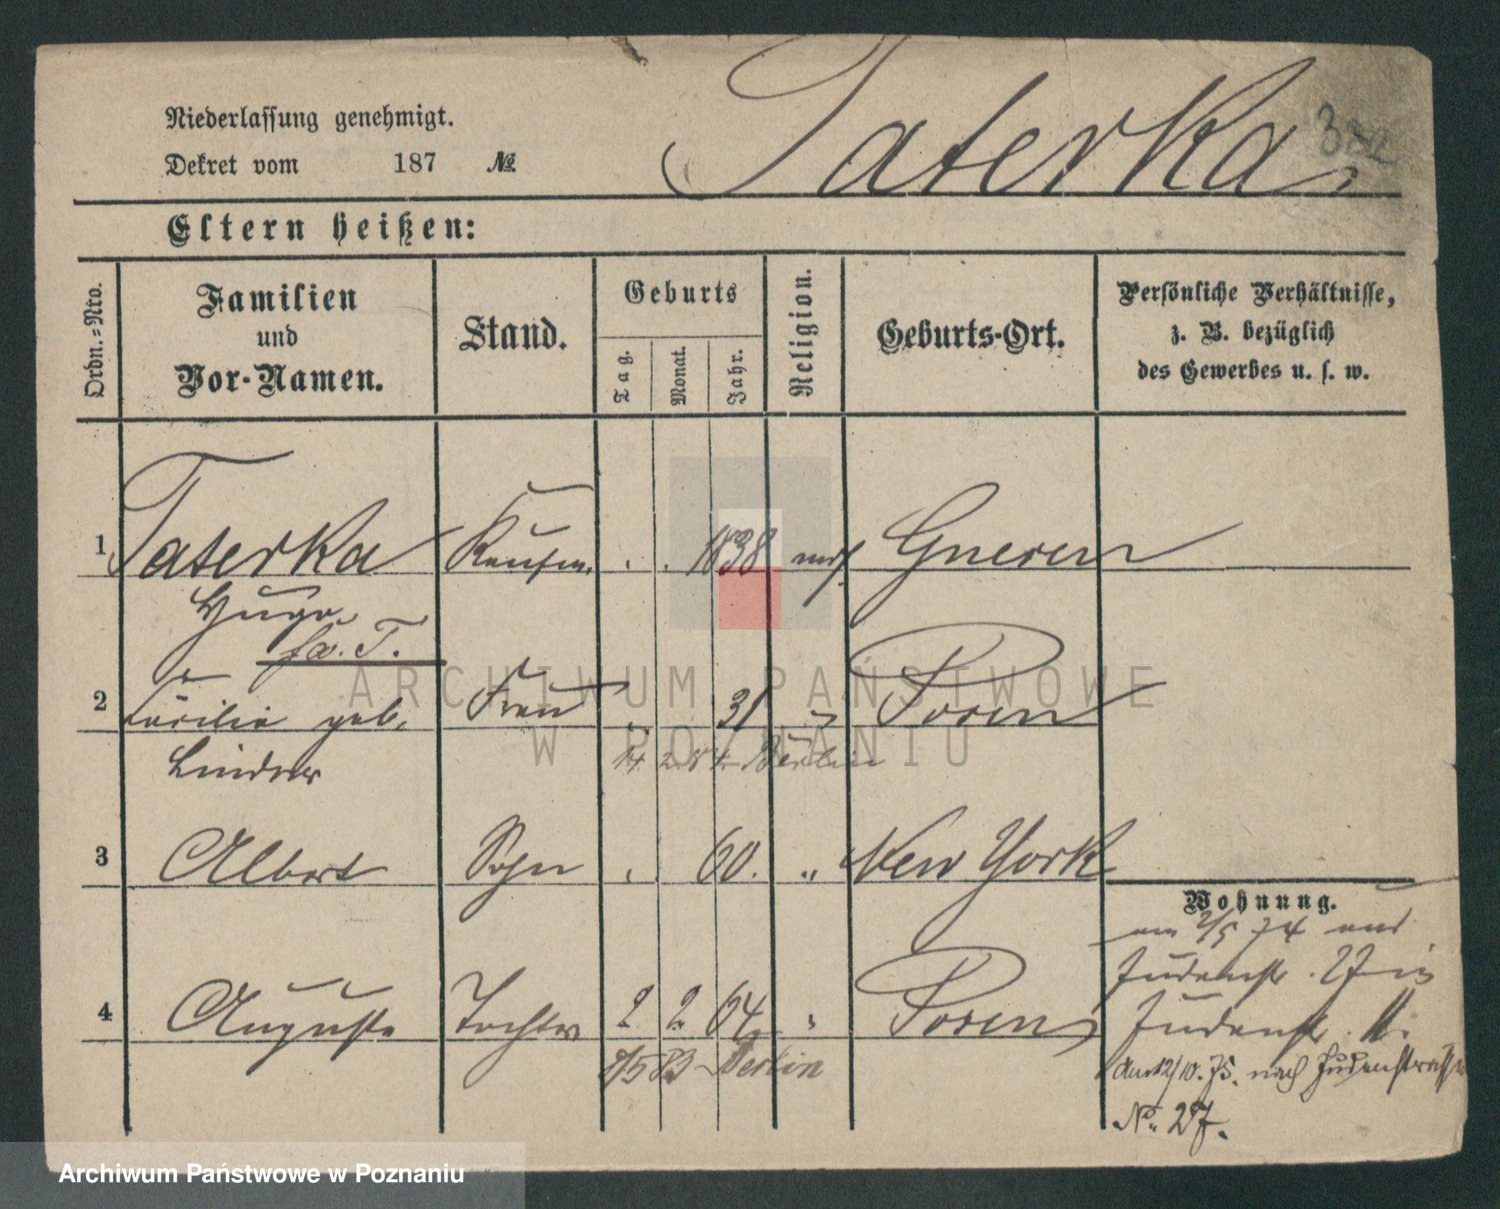 Niederlassung genehmigt.
Dekret vom 187 №
Taterka
382
Eltern heißen:
Ordn.-Nro.
Familien und Vor-Namen.
Stand.
Geburts
Tag.
Monat.
Jahr.
Religion.
Geburts-Ort.
Persönliche Verhältnisse, z. B. bezüglich des Gewerbes u. s. w.
1 Taterka Kaufm. 1838 mos. Gnesen
Hugo
fw. T.
2 Cäcilie geb. Frau 31 " Posen
14 2 84 Berlin
Lindner
3 Albert Sohn 60. " New York
Wohnung.
am 2/5 74 aus
Judenstr. 27 in
4 Auguste Tochter 2 2 64 " Posen
Judenstr. 11.
8/5 83 Berlin
Am 12/10. 75. nach Judenstraße
No. 27.
ARCHIWUM PAŃSTWOWE
W POZNANIU
Archiwum Państwowe w Poznaniu